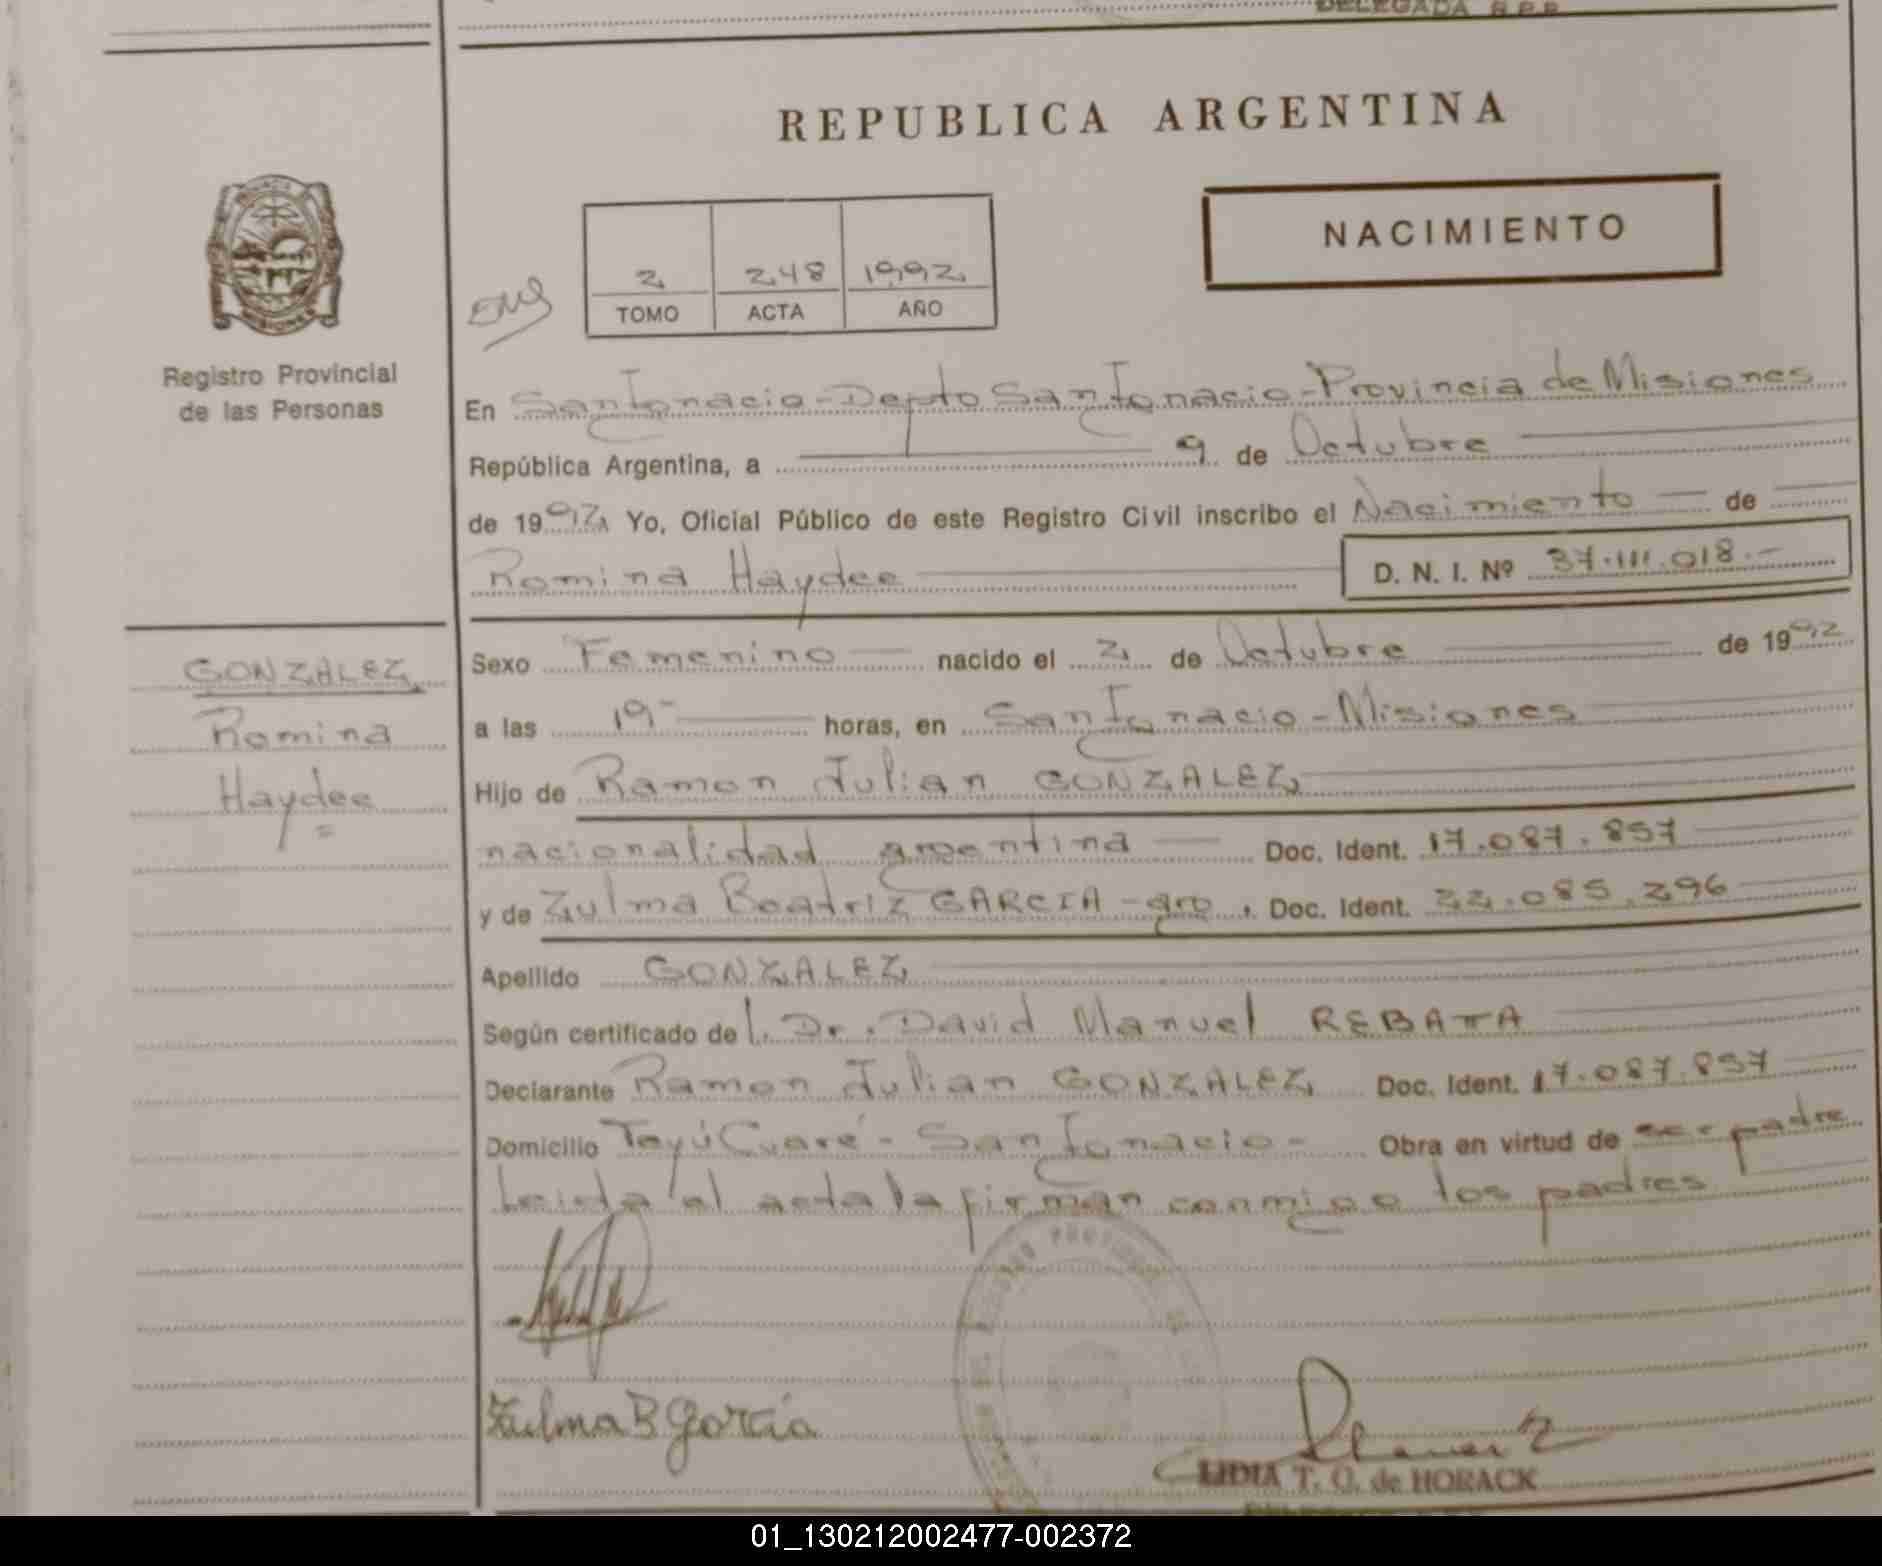 DELEGADA R.P.P.
REPUBLICA ARGENTINA
NACIMIENTO
2 248 1992
TOMO ACTA AÑO
MISIONES
Registro Provincial
de las Personas
En San Ignacio - Depto San Ignacio - Provincia de Misiones
República Argentina, a 9 de Octubre
de 1992 Yo, Oficial Público de este Registro Civil inscribo el Nacimiento de
Romina Haydee D. N. I. Nº 37.111.018.-
GONZALEZ
Romina
Haydee
Sexo Femenino nacido el 2 de Octubre de 1992
a las 19 horas, en San Ignacio - Misiones
Hijo de Ramon Julian GONZALEZ
nacionalidad argentina Doc. Ident. 17.087.857
y de Zulma Beatriz GARCIA - arg. Doc. Ident. 22.085.296
Apellido GONZALEZ
Según certificado del Dr. David Manuel REBATTA
Declarante Ramon Julian GONZALEZ Doc. Ident. 17.087.857
Domicilio Teyú Cuaré - San Ignacio - Obra en virtud de ser padre
Leida el acta la firman conmigo los padres
Zulma B García
LIDIA T. O. de HORACK
01_130212002477-002372